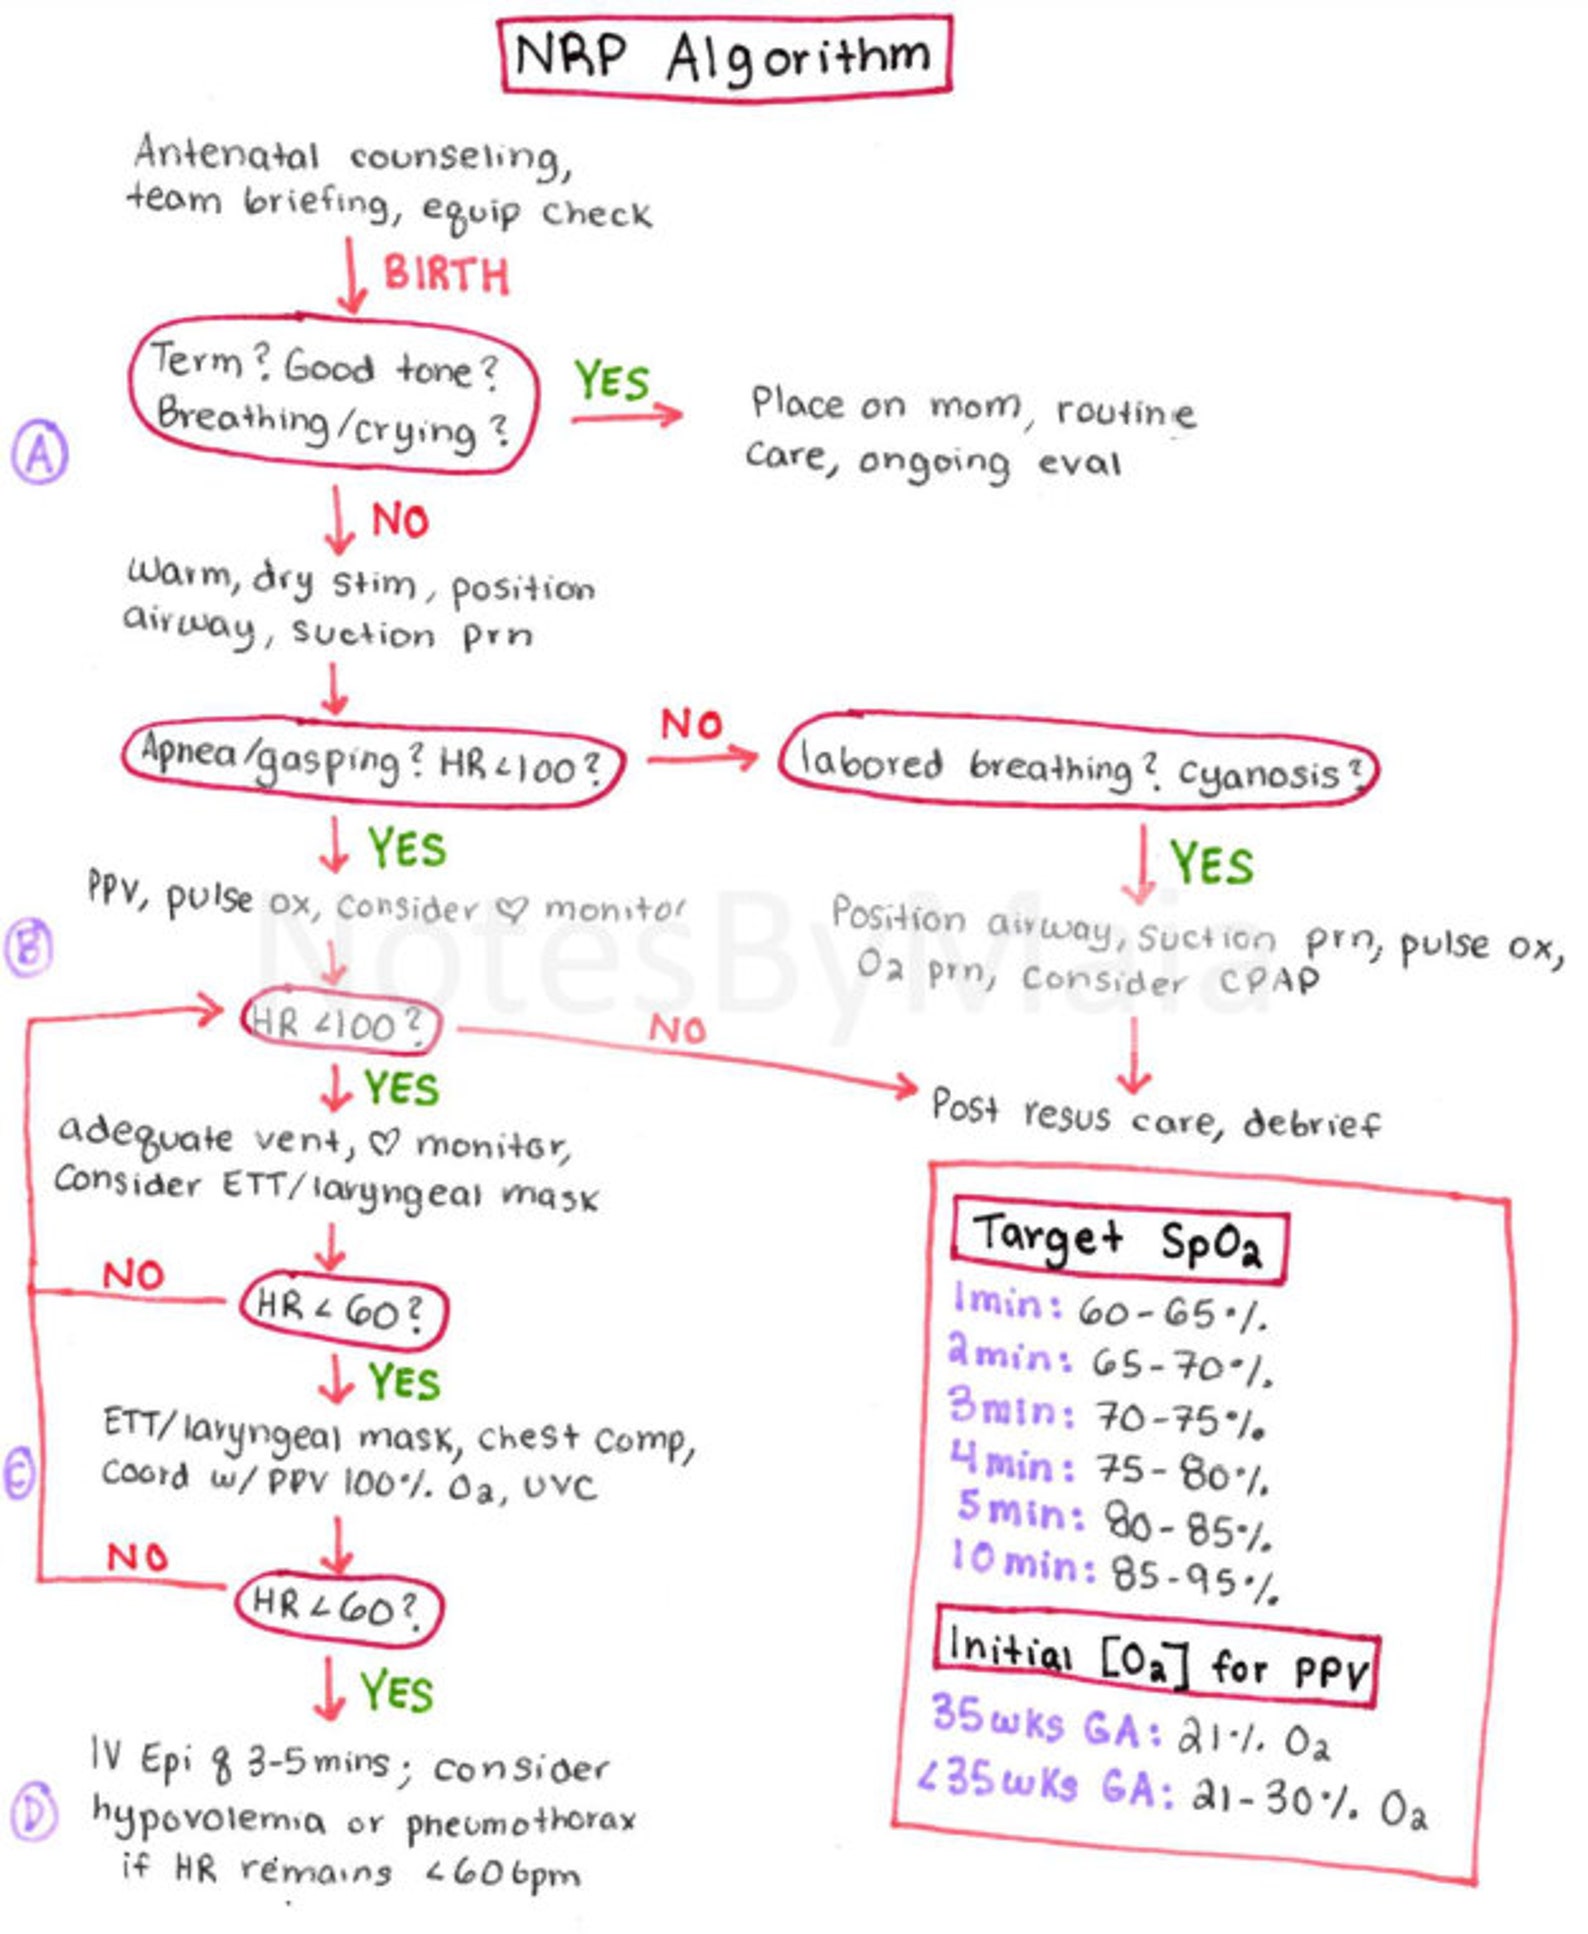 NRP Algorithm
Antenatal counseling,
team briefing, equip check
BIRTH
Term? Good tone?
Breathing/crying?
YES
Place on mom, routine
care, ongoing eval
A
NO
Warm, dry stim, position
airway, suction prn
Apnea/gasping? HR<100?
NO
labored breathing? Cyanosis?
YES
PPV, pulse ox, consider ♡ monitor
YES
Position airway, suction prn, pulse ox,
O2 prn, consider CPAP
NotesByMaia
B
HR <100?
NO
Post resus care, debrief
YES
adequate vent, ♡ monitor,
Consider ETT/laryngeal mask
NO
HR < 60?
YES
ETT/laryngeal mask, chest comp,
Coord w/ PPV 100% O2, UVC
C
NO
HR <60?
YES
IV Epi q 3-5mins; consider
hypovolemia or pneumothorax
if HR remains <60bpm
D
Target SpO2
1min: 60-65%
2min: 65-70%
3min: 70-75%
4min: 75-80%
5min: 80-85%
10min: 85-95%
Initial [O2] for PPV
35wks GA: 21% O2
<35wks GA: 21-30% O2